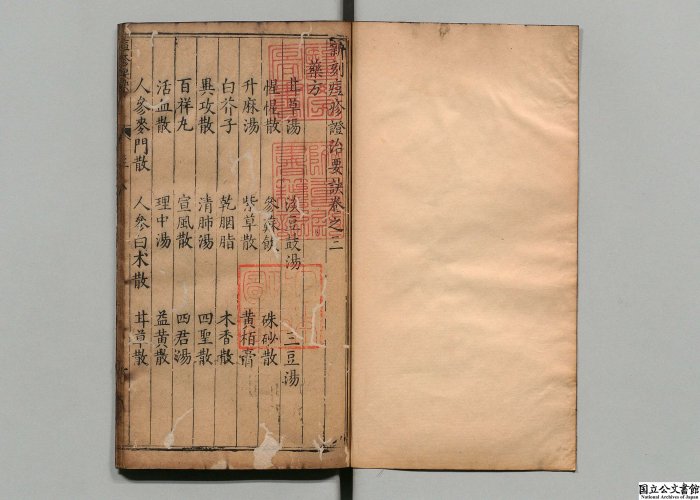 新刻痘疹證治要訣卷之三
藥方
甘草湯 淡豆鼓湯 三豆湯
惺惺散 參蘇飲 硃砂散
升麻湯 紫草散 黃栢膏
白芥子 乾胭脂 木香散
異攻散 清肺湯 四聖散
百祥丸 宣風散 四君湯
活血散 理中湯 益黃散
人參麥門散 人參白术散 甘草散
国立公文書館
National Archives of Japan